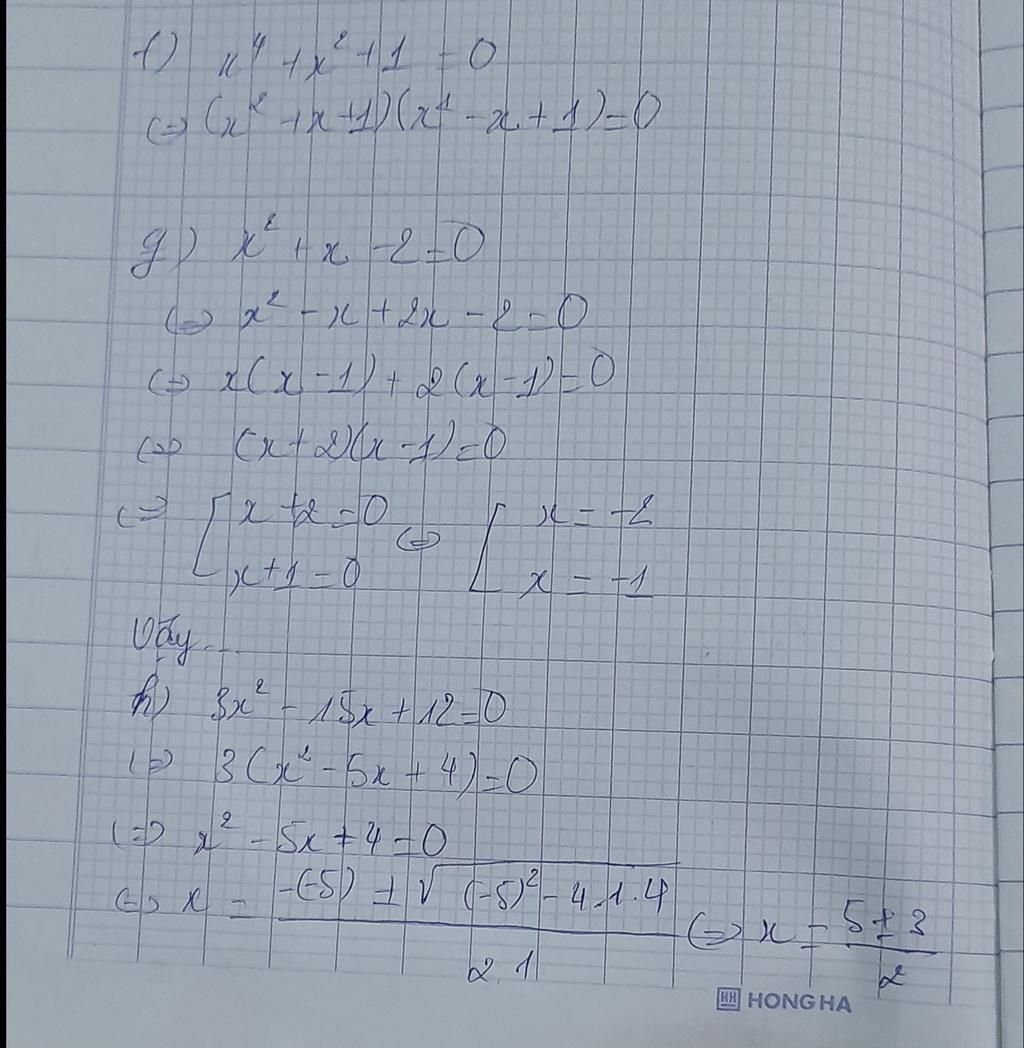 f) x⁴ + x² + 1 = 0
<=> (x² + x + 1)(x² - x + 1) = 0
g) x² + x - 2 = 0
<=> x² - x + 2x - 2 = 0
<=> x(x - 1) + 2(x - 1) = 0
<=> (x + 2)(x - 1) = 0
<=> [ x + 2 = 0 <=> [ x = -2
x + 1 = 0 x = -1
Vậy...
h) 3x² - 15x + 12 = 0
<=> 3(x² - 5x + 4) = 0
<=> x² - 5x + 4 = 0
<=> x = (-(-5) ± √((-5)² - 4.1.4)) / (2.1) <=> x = (5 ± 3) / 2
HONG HA